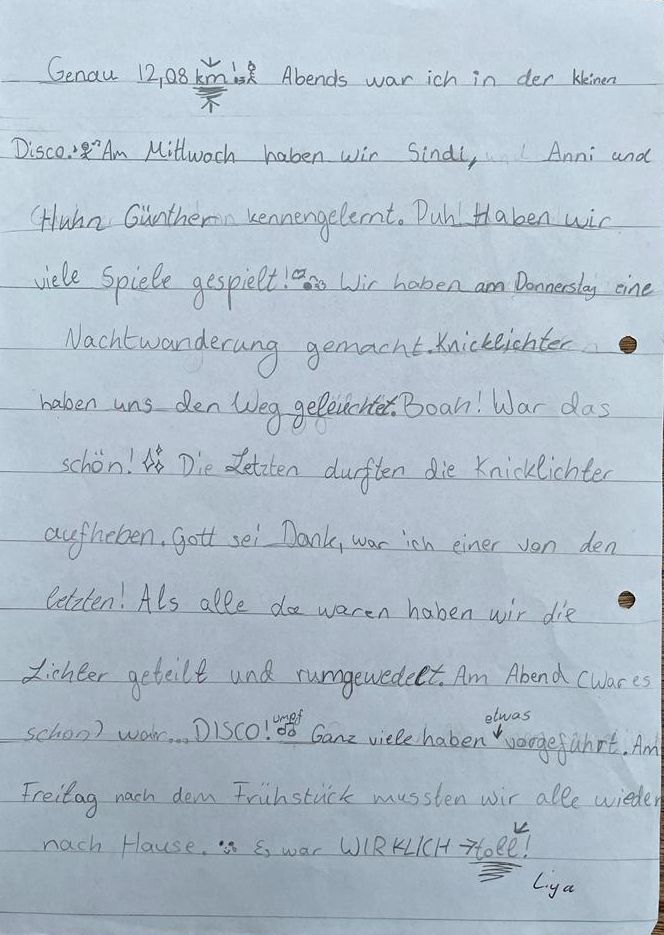 Genau 12,08 km! Abends war ich in der kleinen
Disco. Am Mittwoch haben wir Sindi, und Anni und
Huhn Günther kennengelernt. Puh! Haben wir
viele Spiele gespielt! Wir haben am Donnerstag eine
Nachtwanderung gemacht. Knicklichter
haben uns den Weg geleuchtet. Boah! War das
schön! Die Letzten durften die Knicklichter
aufheben. Gott sei Dank, war ich einer von den
letzten! Als alle da waren haben wir die
Lichter geteilt und rumgewedelt. Am Abend (war es
schon) war... DISCO! umpf Ganz viele haben etwas vorgeführt. Am
Freitag nach dem Frühstück mussten wir alle wieder
nach Hause. Es war WIRKLICH toll!
Liya